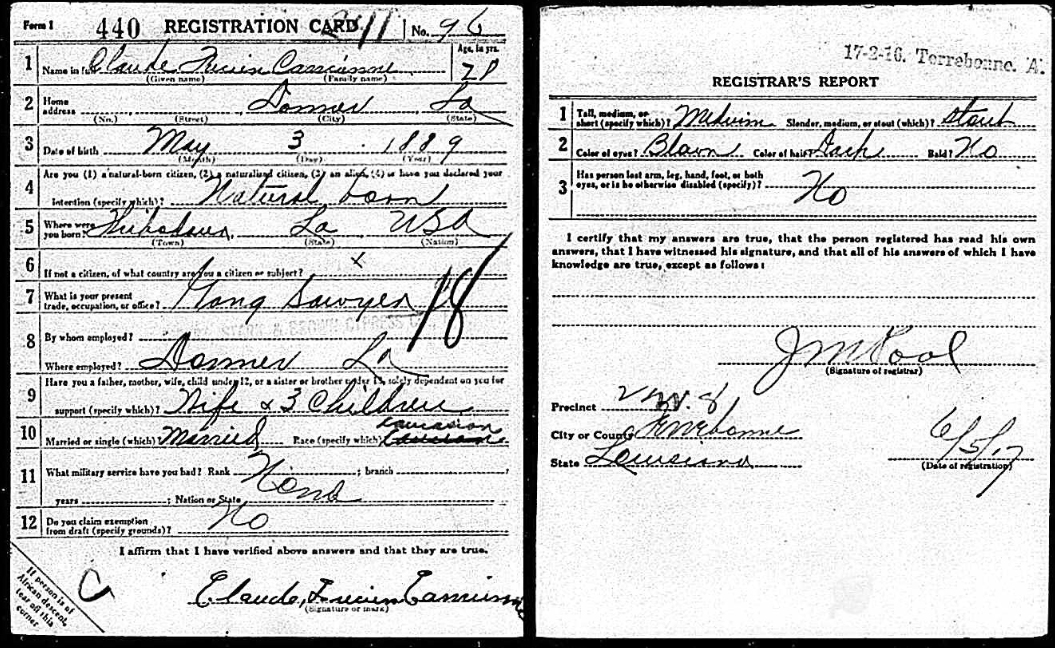 Form 1 440 REGISTRATION CARD 2411 No. 96
1 Name in full Claude Lucien Age, in yrs. 28
(Given name) (Family name)
2 Home address Donner La
(No.) (Street) (City) (State)
3 Date of birth May 3 1889
(Month) (Day) (Year)
4 Are you (1) a natural-born citizen, (2) a naturalized citizen, (3) an alien, (4) or have you declared your
intention (specify which)? Natural born
5 Where were you born? La USA
(Town) (State) (Nation)
6 If not a citizen, of what country are you a citizen or subject? x
7 What is your present trade, occupation, or office? Gang Sawyer 18
8 By whom employed?
Where employed? Donner La
9 Have you a father, mother, wife, child under 12, or a sister or brother under 12, solely dependent on you for
support (specify which)? Wife & 3 Children
10 Married or single (which) Married Race (specify which) Caucasion
11 What military service have you had? Rank None ; branch ;
years ; Nation or State
12 Do you claim exemption from draft (specify grounds)? No
I affirm that I have verified above answers and that they are true.
Claude, Lucien
(Signature or mark)
If person is of
African descent,
tear off this
corner
17-2-16. Terrebonne. A.
REGISTRAR'S REPORT
1 Tall, medium, or short (specify which)? Medium Slender, medium, or stout (which)? stout
2 Color of eyes? Color of hair? Bald? No
3 Has person lost arm, leg, hand, foot, or both
eyes, or is he otherwise disabled (specify)? No
I certify that my answers are true, that the person registered has read his own
answers, that I have witnessed his signature, and that all of his answers of which I have
knowledge are true, except as follows:
J M Pool
(Signature of registrar)
Precinct 8
City or County Terrebonne
State Louisiana
6/5/17
(Date of registration)